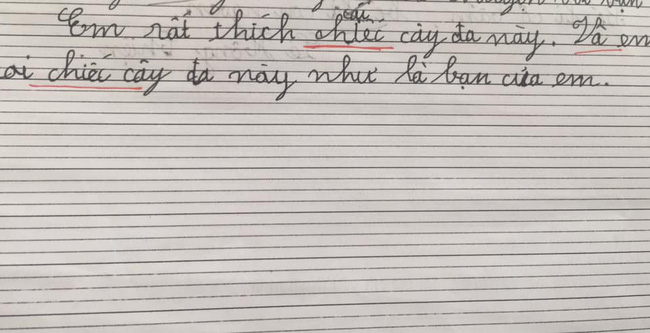 Em rất thích chiếc cây đa này. Và em
oi chiếc cây đa này như là bạn của em.